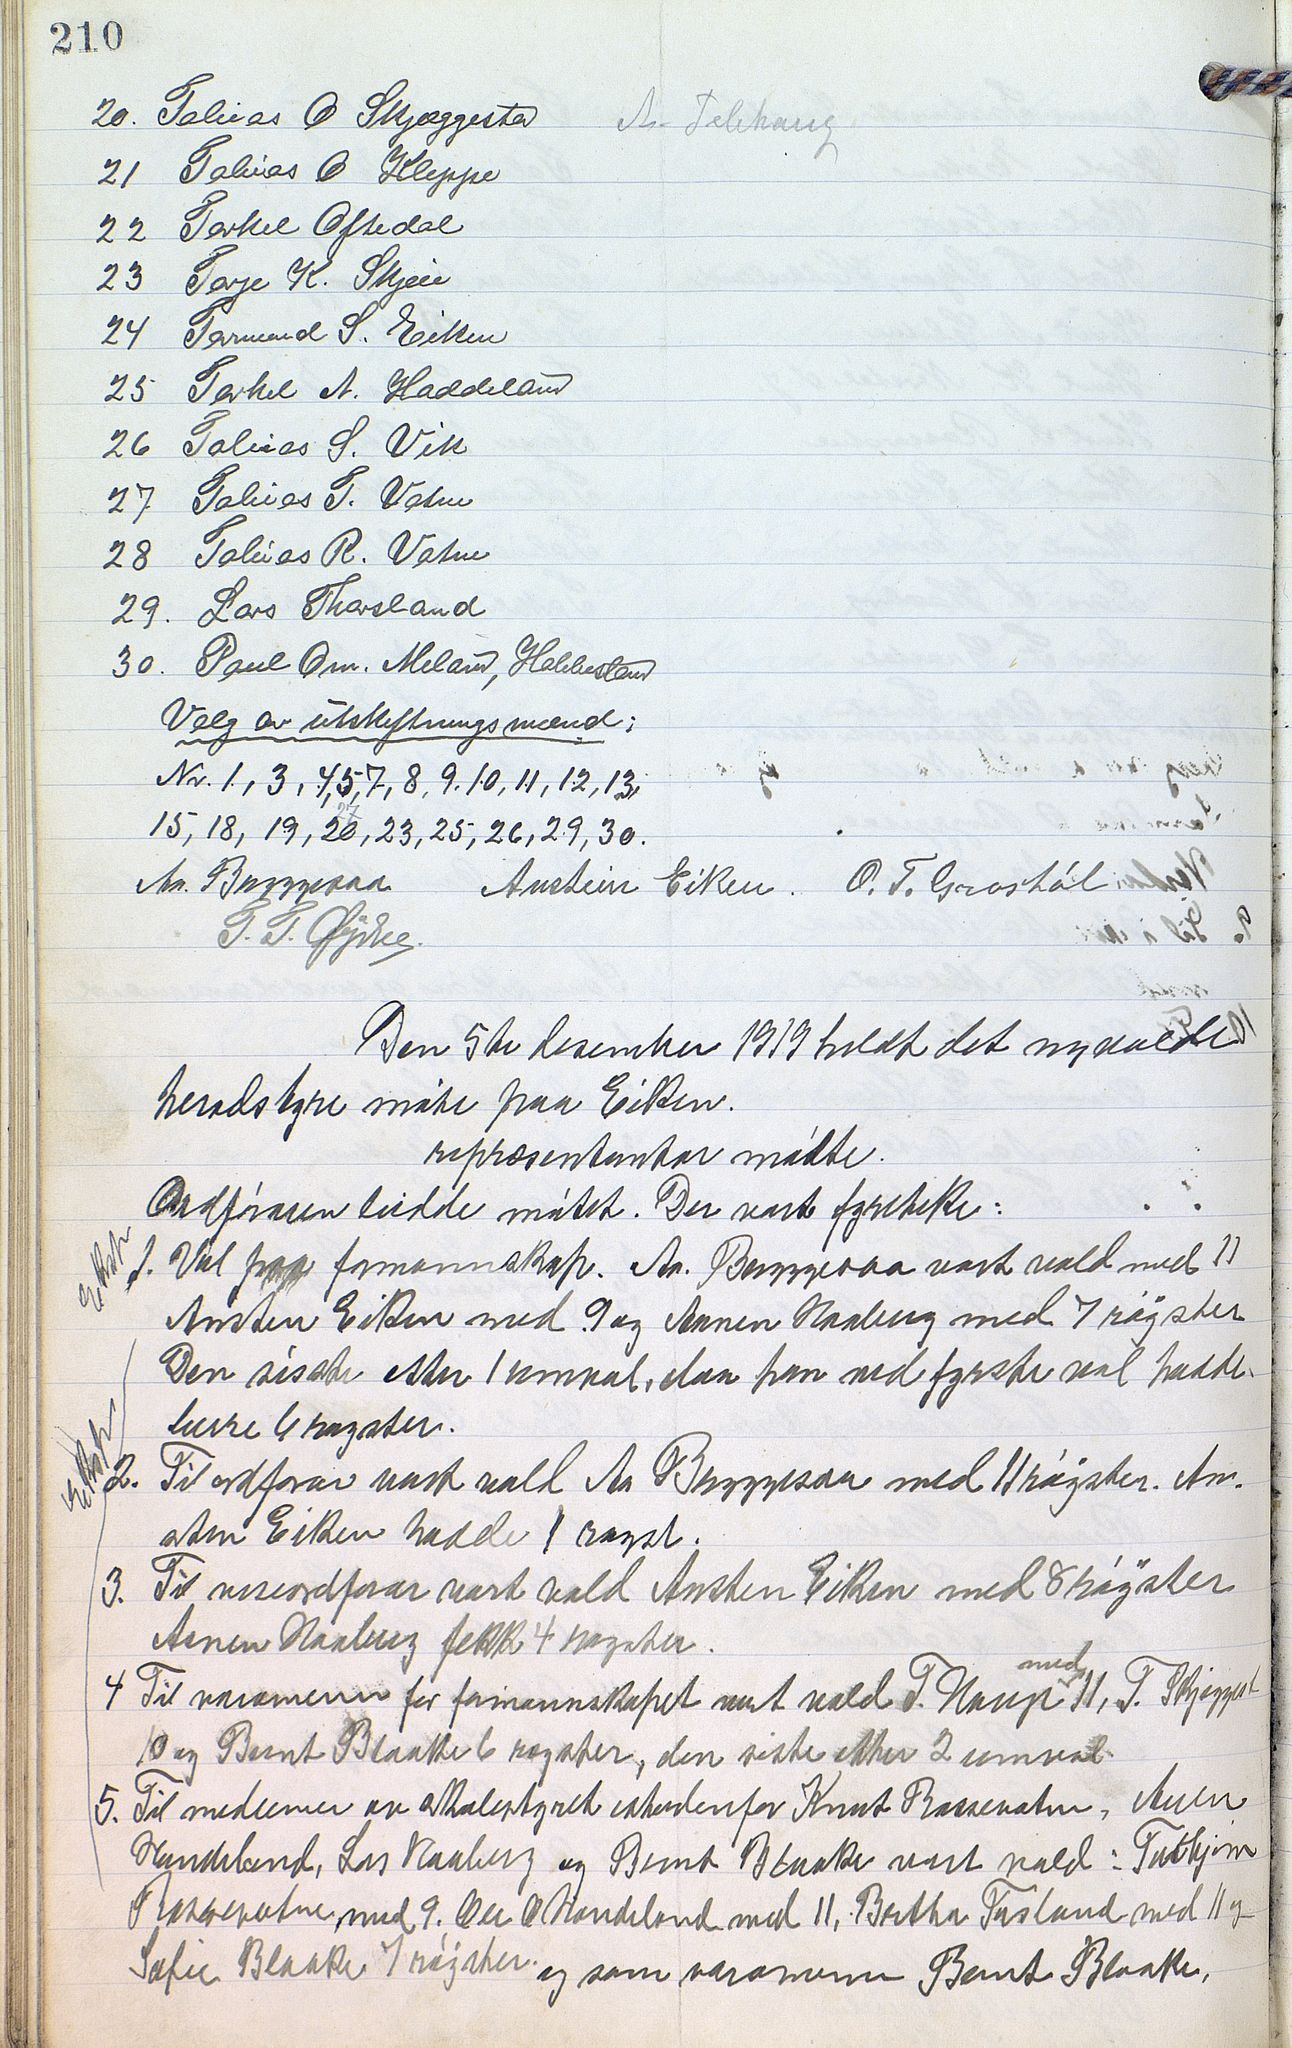 210
20. Tobias O Skjæggestad A. Telhaug
21 Tobias O Kleppe
22 Torkel Oftedal
23 Terje K. Skjeie
24 Tormund S. Eiken
25 Torkel A. Haddeland
26 Tobias S. Vik
27 Tobias T. Vatne
28 Tobias R. Vatne
29. Lars Thorsland
30. Paul Om. Meland, Hobbesland
Valg av utskiftningsmænd:
Nr. 1, 3, 4, 5, 7, 8, 9, 10, 11, 12, 13,
27
15, 18, 19, 20, 23, 25, 26, 29, 30.
Aa. Bryggesaa Austein Eiken. O. T. Grostøl
T. T. Øydne.
Den 5te desember 1919 heldt det nyvalde
heradstyre møte paa Eiken.
representantar møtte.
Ordføraren leidde møtet. Der vart fyreteke:
Utskr
1. Val paa formannskap. Aa. Bryggesaa vart vald med 11
Austen Eiken med 9 og Aanen Haaberg med 7 røyster
Den siste etter 1 umval, daa han ved fyrste val hadde
berre 6 røyster.
Utskr
2. Til ordførar vart vald Aa Bryggesaa med 11 røyster. Au-
sten Eiken hadde 1 røyst.
3. Til viseordførar vart vald Austen Eiken med 8 røyster
Aanen Haaberg fekk 4 røyster.
med
4 Til varamenn for formannskapet vart vald T. Hough 11, T. Skjeggest
10 og Bernt Blaake 6 røyster, den siste etter 2 umval
5. Til medlemer av skulestyret istadenfor Knut Rossevatn, Aanen
Handeland, Lars Haaberg og Bernt Blaake vart vald: Torbjørn
Rossevatne med 9. Ole O Handeland med 11, Bertha Frøsland med 11 og
Sofie Blaake 7 røyster og som varamenn Bernt Blaake,